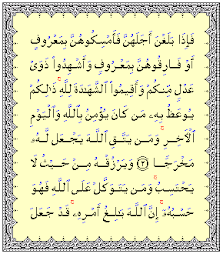 فَإِذَا بَلَغْنَ أَجَلَهُنَّ فَأَمْسِكُوهُنَّ بِمَعْرُوفٍ
أَوْ فَارِقُوهُنَّ بِمَعْرُوفٍ وَأَشْهِدُوا۟ ذَوَىْ
عَدْلٍ مِّنكُمْ وَأَقِيمُوا۟ ٱلشَّهَٰدَةَ لِلَّهِ ۚ ذَٰلِكُمْ
يُوعَظُ بِهِۦ مَن كَانَ يُؤْمِنُ بِٱللَّهِ وَٱلْيَوْمِ
ٱلْـَٔاخِرِ ۚ وَمَن يَتَّقِ ٱللَّهَ يَجْعَل لَّهُۥ
مَخْرَجًا ﴿٢﴾ وَيَرْزُقْهُ مِنْ حَيْثُ لَا
يَحْتَسِبُ ۚ وَمَن يَتَوَكَّلْ عَلَى ٱللَّهِ فَهُوَ
حَسْبُهُۥٓ ۚ إِنَّ ٱللَّهَ بَٰلِغُ أَمْرِهِۦ ۚ قَدْ جَعَلَ